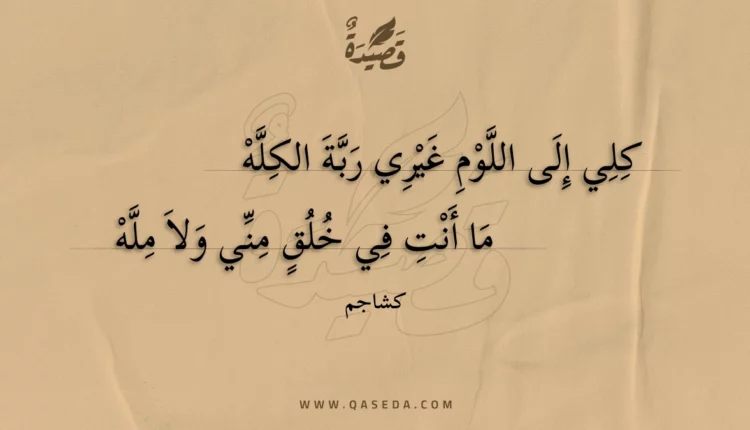 قَصِيدَةٌ
كِلِي إِلَى اللَّوْمِ غَيْرِي رَبَّةَ الكِلَّهْ
مَا أَنْتِ فِي خُلُقٍ مِنِّي وَلاَ مِلَّهْ
كشاجم
WWW.QASEDA.COM